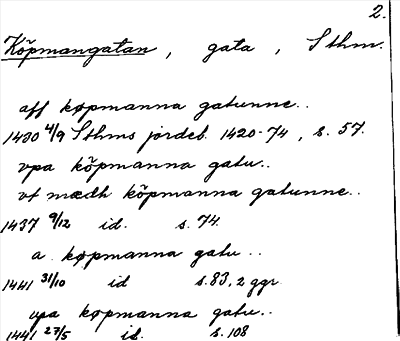 2.
Köpmangatan, gata, Sthm.
aff køpmanna gatunne..
1430 4/9 Sthms jordeb. 1420-74, s. 57.
vpa köpmanna gatu..
vt mædh köpmanna gatunne..
1437 9/12 id. s. 74.
a køpmanna gatu..
1441 31/10 id s. 83, 2 ggr
vpa køpmanna gatu..
1441 27/5 id. s. 108